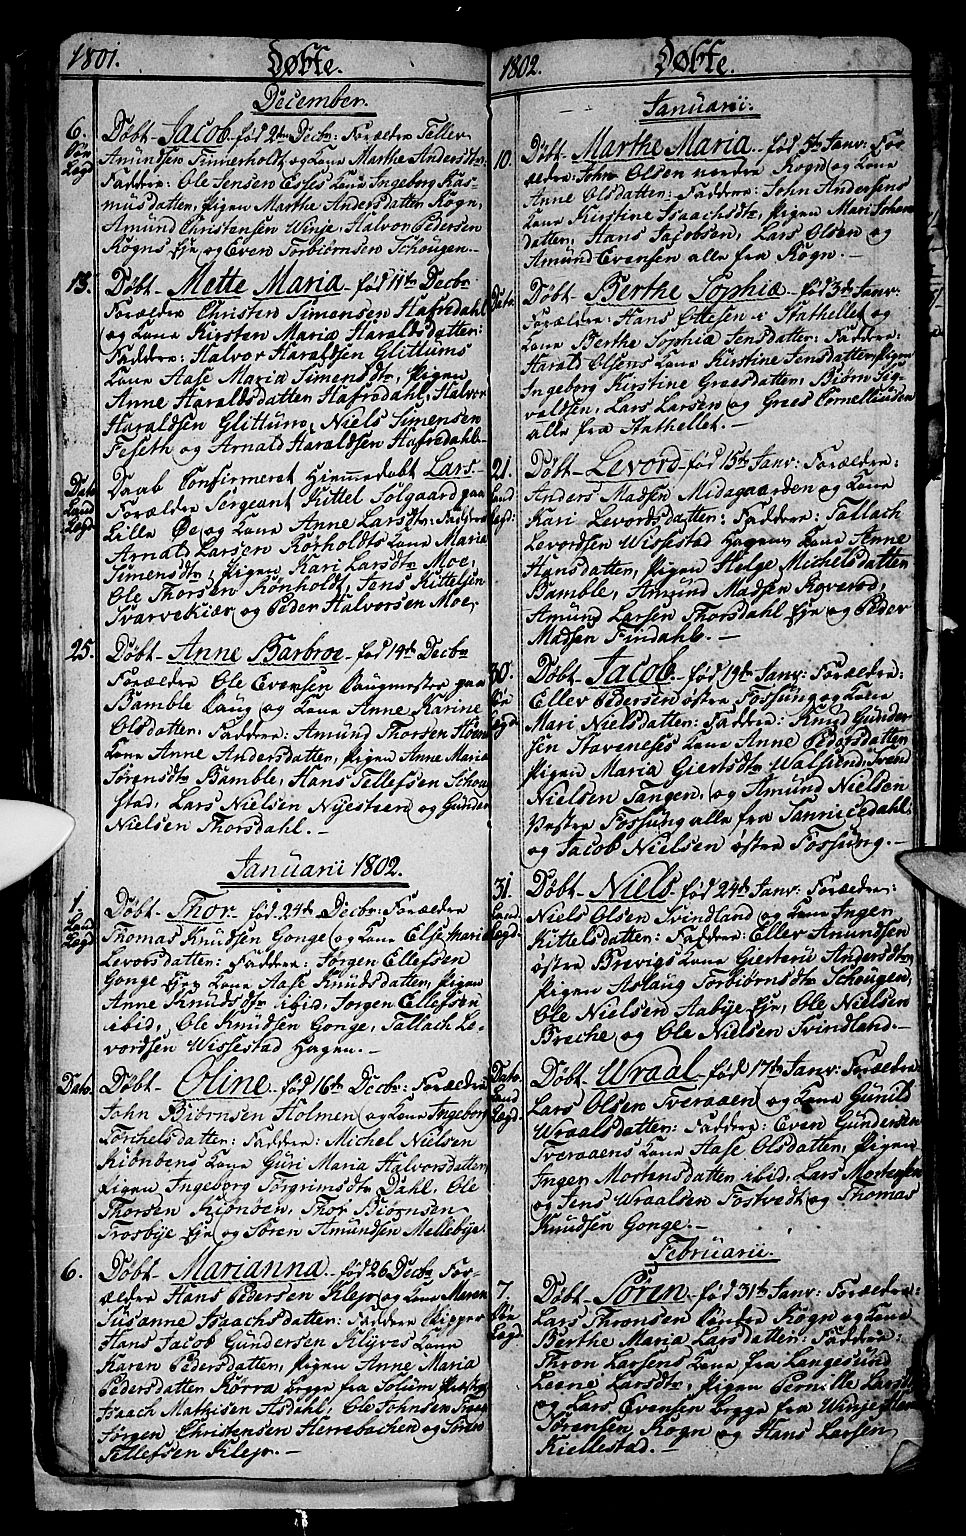 1801.
Døbte.
December.
6. Døbt Jacob, fød 2den Decbr: Forældre Teller
Søe Lagd Amundsen Timmerholdt og Kone Marthe Andersdtr:
Faddre: Ole Jensen Esses Kone Ingeborg Ras-
musdatter, Pigen Marthe Andersdatter Rogn,
Amund Christensen Winje, Halvor Pedersen
Rogns Eje og Even Torbiørnsen Schougen.
13. Døbt Mette Maria fød 11te Decbr
Forældre Christen Simonsen Hafredahl
og Kone Kirsten Maria Haraldsdatter:
Faddre: Halvor Haraldsen Glittums
Kone Aase Maria Simensdtr, Pigen
Anne Haraldsdatter Hafredahl, Halvor
Haraldsen Glittum, Niels Simensen
Feseth og Arnald Haraldsen Hafredahl
Dato Land Lagd Daab Confirmeret Hjemmedøbt Lars
Forældre Sergeant Kittel Solgaard paa
Lille Øe og Kone Anne Larsdtr: Faddre
Arnald Larsen Rørholdts Kone Maria
Simensdtr, Pigen Kari Larsdtr Moe,
Ole Thorsen Rønholdt, Jens Kittelsen
Svarvekiær og Peder Halvorsen Moe,
25. Døbt Anne Barbroe fød 19th Decbr
Forældre Ole Evensen Laugmester paa
Bamble Laug og Kone Anne Karine
Olsdatter. Faddre: Amund Thorsen Høens
Kone Anne Andersdatter, Pigen Anne Maria
Sørensdtr Bamble, Hans Tellefsen Schou-
stad, Lars Nielsen Nyesteen og Gunder
Nielsen Thorsdahl.
Januarii 1802.
1. Land Lagd Døbt Thor fød 24th Decbr: Forældre
Thomas Knudsen Gonge og Kone Else Maria
Levorsdatter: Faddre: Jørgen Ellefsen
Gonge Eje Kone Aase Knudsdatter, Pigen
Anne Knudsdtr ibid, Jørgen Ellefsen
ibid, Ole Knudsen Gonge, Tallach Le-
vordsen Wissestad Hagen.
Dato. Døbt Oline fød 16th Decbr: Forældre
John Biørnsen Holmen og Kone Ingeborg
Torchelsdatter: Faddre: Michel Nielsen
Kiønbens Kone Guri Maria Halvorsdatter,
Pigen Ingeborg Torgrimsdtr Dahl, Ole
Thorsen Kiønsen, Thor Biørnsen
Trosbye Eje og Søren Amundsen Mellebye
6. Døbt Marianna fød 26 Decbr For-
ældre Hans Pedersen Klep og Kone Maren
Susanne Isaachsdatter: Faddre Skipper
Hans Jacob Gundersen Klyves Kone
Karen Pedersdatter, Pigen Anne Maria
Pedersdatter Rørra begge fra Solum
Isaach Mathisen Asdahl, Ole Johnsen
Jørgen Christensen Herrebachen og Søren
Tellefsen Klep.
1802.
Døbte.
Januarii.
10. Døbt Marthe Maria fød 5th Janv: For-
ældre: John Olsen nordre Rogn og Kone
Anne Olsdatter: Faddre: John Andersens
Kone Kirstine Isaachsdtr, Pigen Mari Johns-
datter, Hans Jacobsen, Lars Olsen og
Amund Evensen alle fra Rogn.
Dato Døbt Berthe Sophia fød 3th Janv:
Forældre: Hans Ottesen i Stathellet og
Kone Berthe Sophia Jensdatter: Faddre:
Harald Olsens Kone Kirstine Jensdatter, Pigen
Ingeborg Kirstine Graesdatter, Biørn Sig-
valdsen, Lars Larsen og Graes Corneliussen
alle fra Stathellet.
21. Land Lagd: Døbt Levord fød 15th Janv: Forældre:
Anders Madsen Midgaarden og Kone
Kari Levordsdatter: Faddre: Tallach
Levordsen Wissestad Hagens Kone Anne
Hansdatter, Pigen Helge Michelsdatter
Bamble, Amund Madsen Roverød,
Amund Larsen Thorsdahl Eje og Peder
Madsen Findahl.
30. Søe Lagd Døbt Jacob fød 19th Janv: Forældre:
Ellef Pedersen østre Fossung og Kone
Mari Nielsdatter: Faddre: Knud Gunder-
sen Stavenesses Kone Anne Pedersdatter
Pigen Maria Giertsdtr Walsund, Svend
Nielsen Tangen, og Amund Nielsen
Vestre Fossung alle fra Sannicedahl,
og Jacob Nielsen østre Fossung.
31. Land Lagd. Døbt Niels fød 24th Janv: Forældre:
Niels Olsen Svindland og Kone Inger
Kittelsdatter: Faddre: Ellef Amundsen
østre Brevigs Kone Giertru Andersdtr,
Pigen Aslaug Torbiørnsdtr Schougen,
Ole Nielsen Aabye Eje, Ole Nielsen
Breche og Ole Nielsen Svindland.
Dato Land Lagd Døbt Wraal fød 17th Janv: Forældre
Lars Olsen Tveraaen og Kone Gunild
Wraalsdatter: Faddre: Even Gundersen
Tveraaens Kone Aase Olsdatter, Pigen
Inger Mortensdatter ibid, Lars Mortensen
og Jens Wraalsen Fostvedt og Thomas
Knudsen Gonge.
Februarii.
7. Søe Lagd. Døbt Søren fød 31th Janv: Forældre:
Lars Thronsen Søndre Rogn og Kone
Berthe Maria Larsdatter: Faddre:
Thron Larsens Kone fra Langesund
Leene Larsdtr, Pigen Pernille Larsdtr
og Lars Evensen begge fra Winje,
Sørensen Rogn og Hans Larsen
Kiellestad.